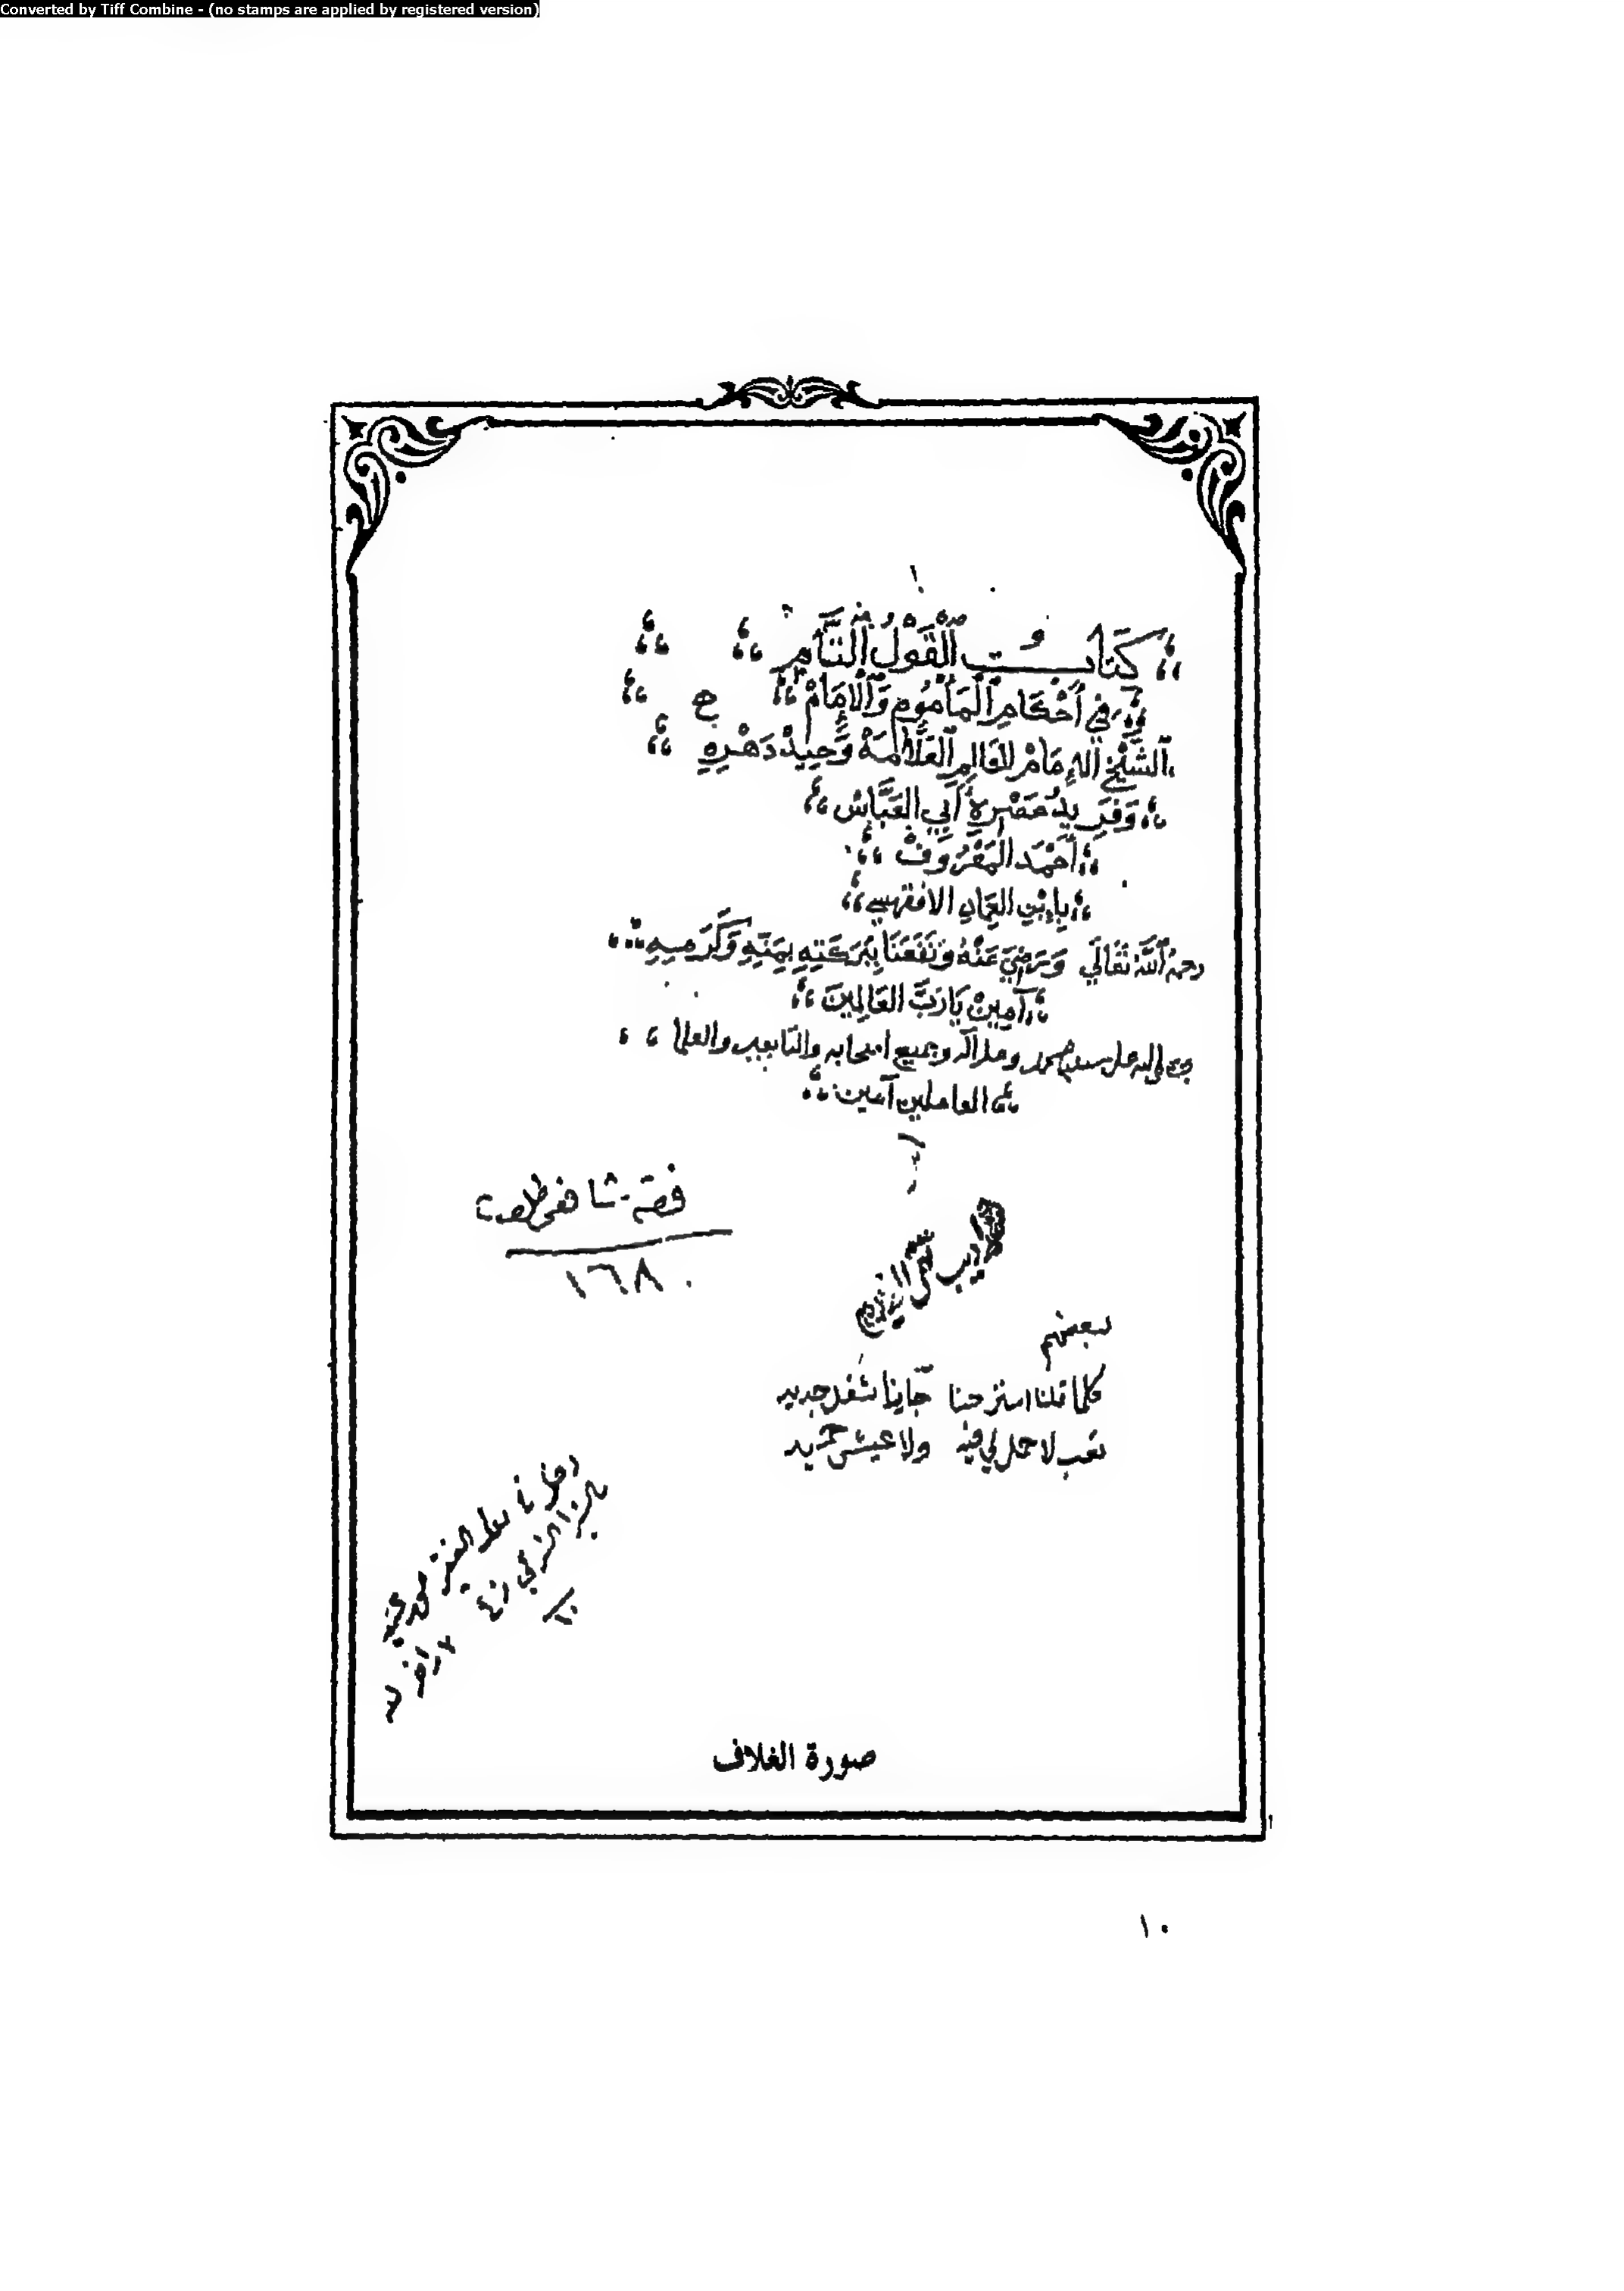 Converted by Tiff Combine - (no stamps are applied by registered version)
كِتَابُ الْقَوْلُ التَّامِّ
فِي أَحْكَامِ الْمَأْمُومِ وَالْإِمَامْ
الشَّيْخِ الإِمَامْ العَالِمِ الْعَلَّامَةْ وَحِيدْ دَهْرِهِ
وَفَرِيدُ عَصْرِهِ أَبِي العَبَّاسْ
أَحْمَدَ المَعْرُوفْ
بِابْنِ العِمَادِ الافقهسي
رحمهُ اللّٰهُ تَعَالَي وَرَضِيَ عَنْهُ وَنَفَعَنَا بِبَرَكَتِهِ بِمَنِّهِ وَكَرَمِهِ
آمِيْنْ يَارَبَّ العَالَمِينَ
وصلى الله على سيدنا محمد وعلى آله وجميع اصحابه والتابعين والعلما
العاملين آمين
فقه شافعى طلعت
١٦٨
لبعضهم
كلما قلنا استرحنا جاينا شغل جديد
تعب لا حمل لي فيه ولا عيش حميد
صورة الغلاف
١٠